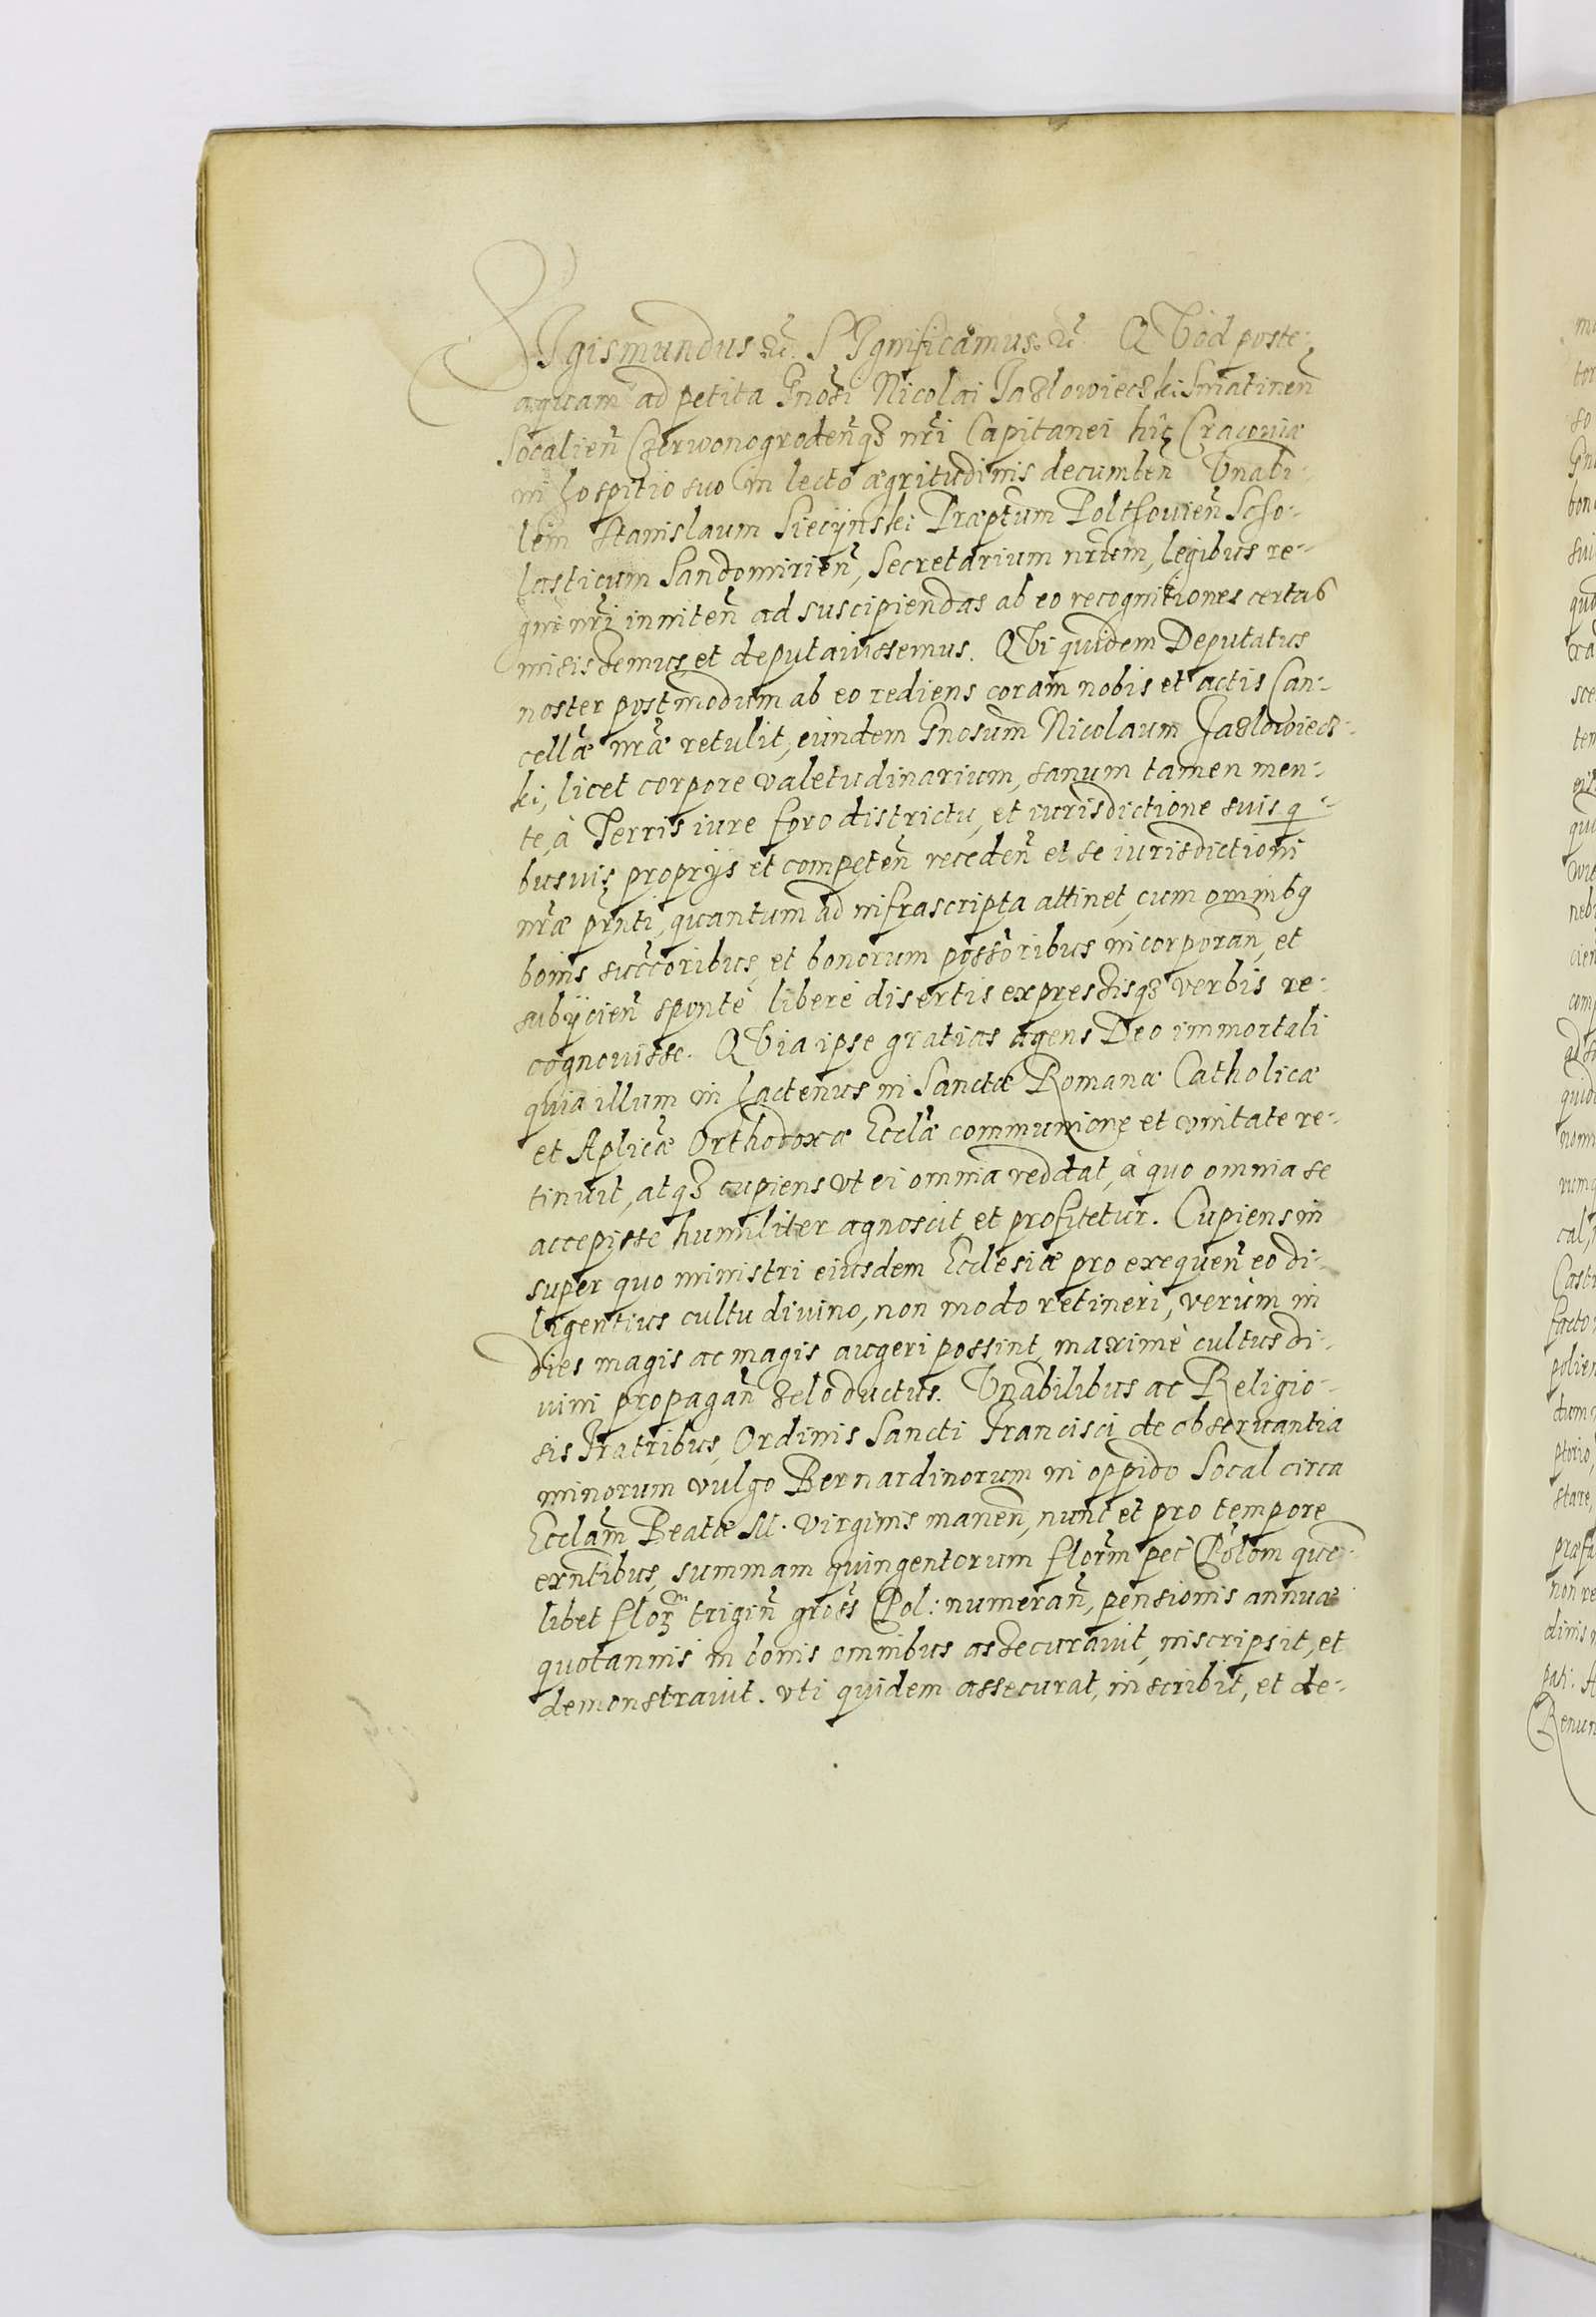 SIgismundus etc. SIgnificamus etc. QVod poste-
aquam ad petita Gnosi Nicolai Jazlowieczki Sniatineñ
Socalieñ Czerwonogrodeñq3 nri Capitanei hic Cracouiæ
in hospitio suo in lecto ægritudinis decumbeñ Vnabi-
lem Stanislaum Siecijnski Præptum Polthouieñ Scho-
lasticum Sandomirieñ, Secretarium nrum, legibus re-
gni nri inniteñ ad suscipiendas ab eo recognitiones certas
misissemus et deputauissemus. QVi quidem Deputatus
noster postmodum ab eo rediens coram nobis et actis Can-
cellæ nræ retulit, eundem Gnosum Nicolaum Jazlowiecz-
ki, licet corpore valetudinarium, sanum tamen men-
te, à Terris iure foro districtu, et iurisdictione suis q-
busuis proprijs et competeñ recedeñ et se iurisdictioni
nræ pñti, quantum ad infrascripta attinet, cum omnibq
bonis succoribus, et bonorum possoribus incorporañ, et
subijcieñ sponte libere disertis expressisq3 verbis re-
cognouisse. QVia ipse gratias agens Deo immortali
quia illum in hactenus in Sanctæ Romanæ Catholicæ
et Aplicæ Orthodoxæ Ecclæ communione et vnitate re-
tinuit, atq3 cupiens vt ei omnia reddat, à quo omnia se
accepisse humiliter agnoscit et profitetur. Cupiens in
super quo ministri eiusdem Ecclesiæ pro exequeñ eo di-
ligentius cultu diuino, non modo retineri, verùm in
dies magis ac magis augeri possint, maximè cultus di-
uini propagañ zelo ductus. Vnabilibus ac Religio-
sis Fratribus Ordinis Sancti Francisci de obseruantia
minorum vulgo Bernardinorum in oppido Socal circa
Ecclam Beatæ M. virginis maneñ, nunc et pro tempore
exñtibus, summam quingentorum florm pec Polom quo-
libet flor trigiñ gross Pol: numerañ, pensionis annuæ
quotannis in bonis omnibus assecurauit, inscripsit, et
demonstrauit. vti quidem assecurat, inscribit, et de-